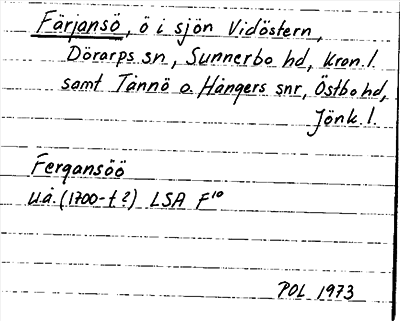 Färjansö, ö i sjön Vidöstern,
Dörarps sn, Sunnerbo hd, Kron. l.
samt Tånnö o. Hångers snr, Östbo hd,
Jönk. l.
Fergansöö
u.å. (1700-t?) LSA F10
POL 1973